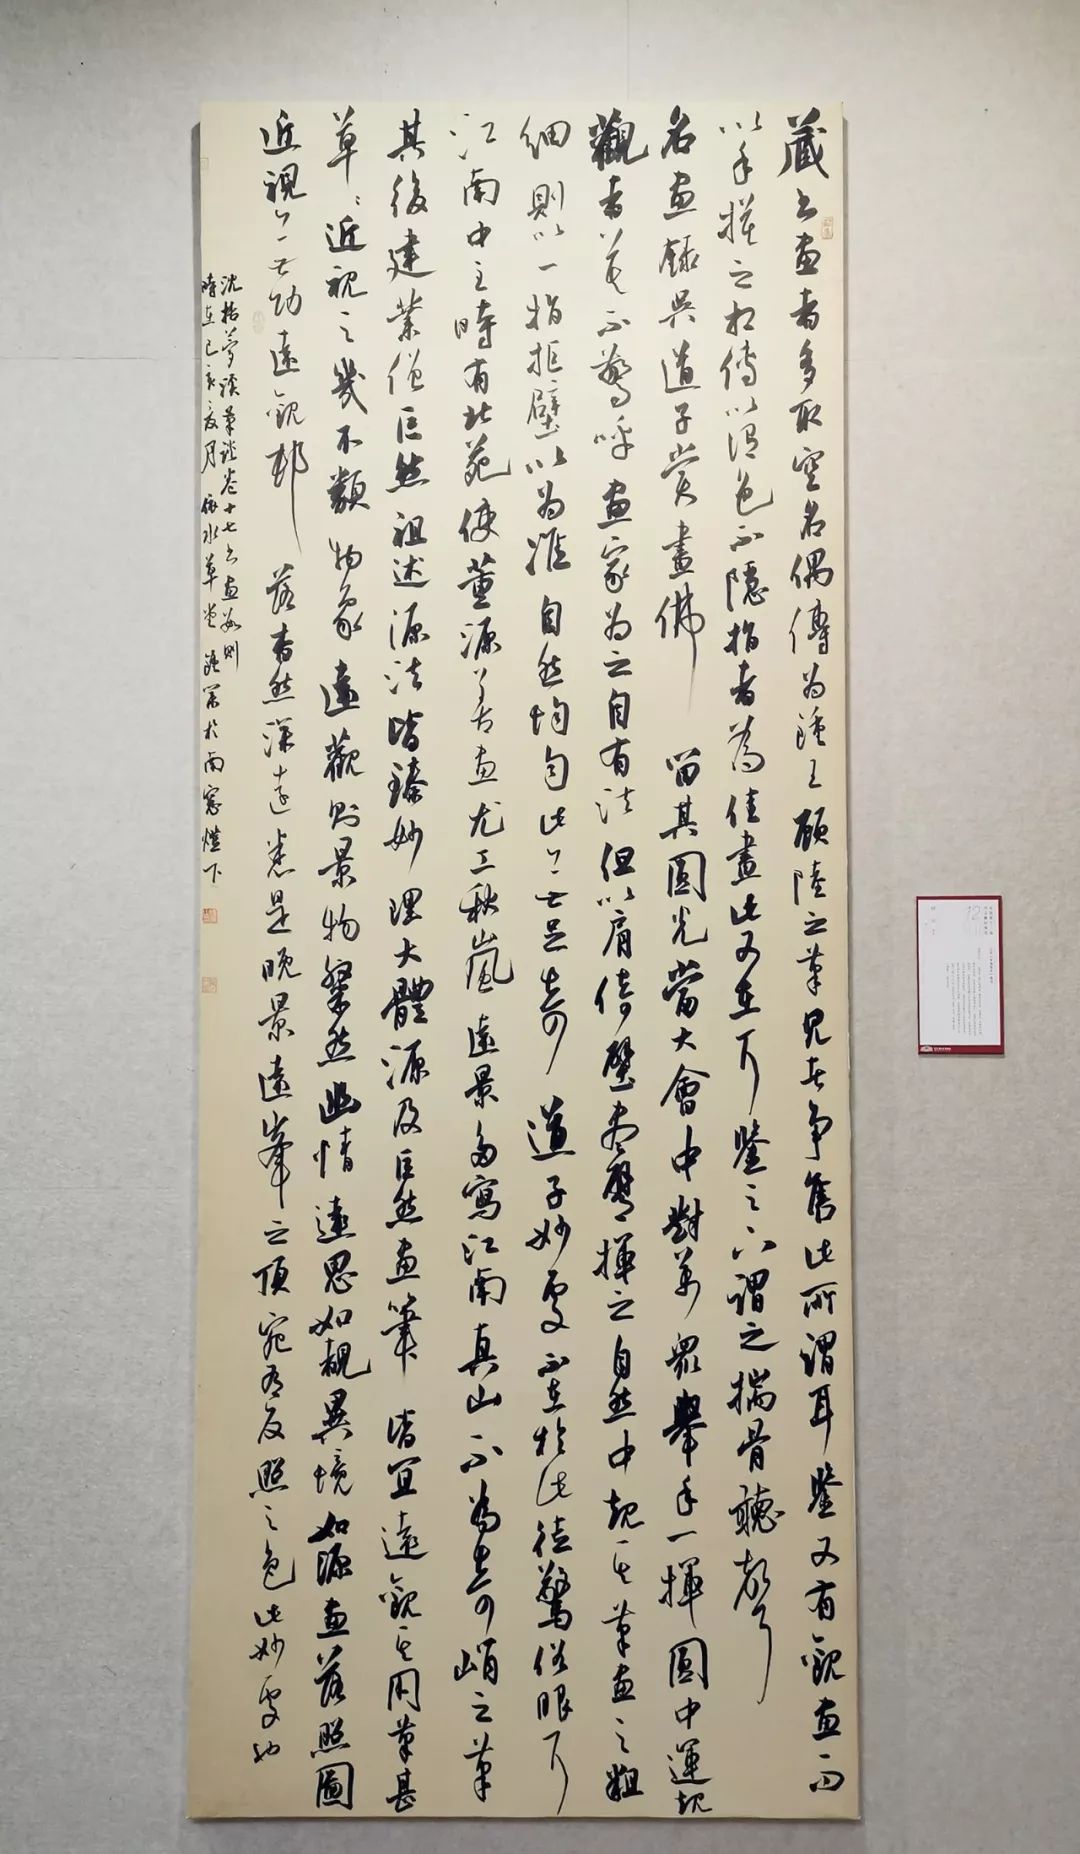 藏書畫者多取空名偶傳為鍾王顧陸之筆見者爭售此所謂耳鑒又有觀畫而
以手摸之相傳以謂色不隱指者為佳畫此又在耳鑒之下謂之揣骨聽聲
名畫錄吳道子嘗畫佛留其圓光當大會中對萬眾舉手一揮圓中運規
觀者莫不驚呼畫家為之自有法但以肩倚壁盡臂揮之自然中規其筆畫之粗
細則以一指拒壁以為準自然均勻此無足奇道子妙處不在於此徒驚俗眼耳
江南中主時有北苑使董源善畫尤工秋嵐遠景多寫江南真山不為奇峭之筆
其後建業僧巨然祖述源法皆臻妙理大體源及巨然畫筆皆宜遠觀其用筆甚
草草近視之幾不類物象遠觀則景物粲然幽情遠思如覩異境如源畫落照圖
近視無功遠觀村落杳然深遠悉是晚景遠峯之頂宛有反照之色此妙處也
沈括夢溪筆談卷十七書畫數則
時在己亥 月 水草堂 於南窓燈下